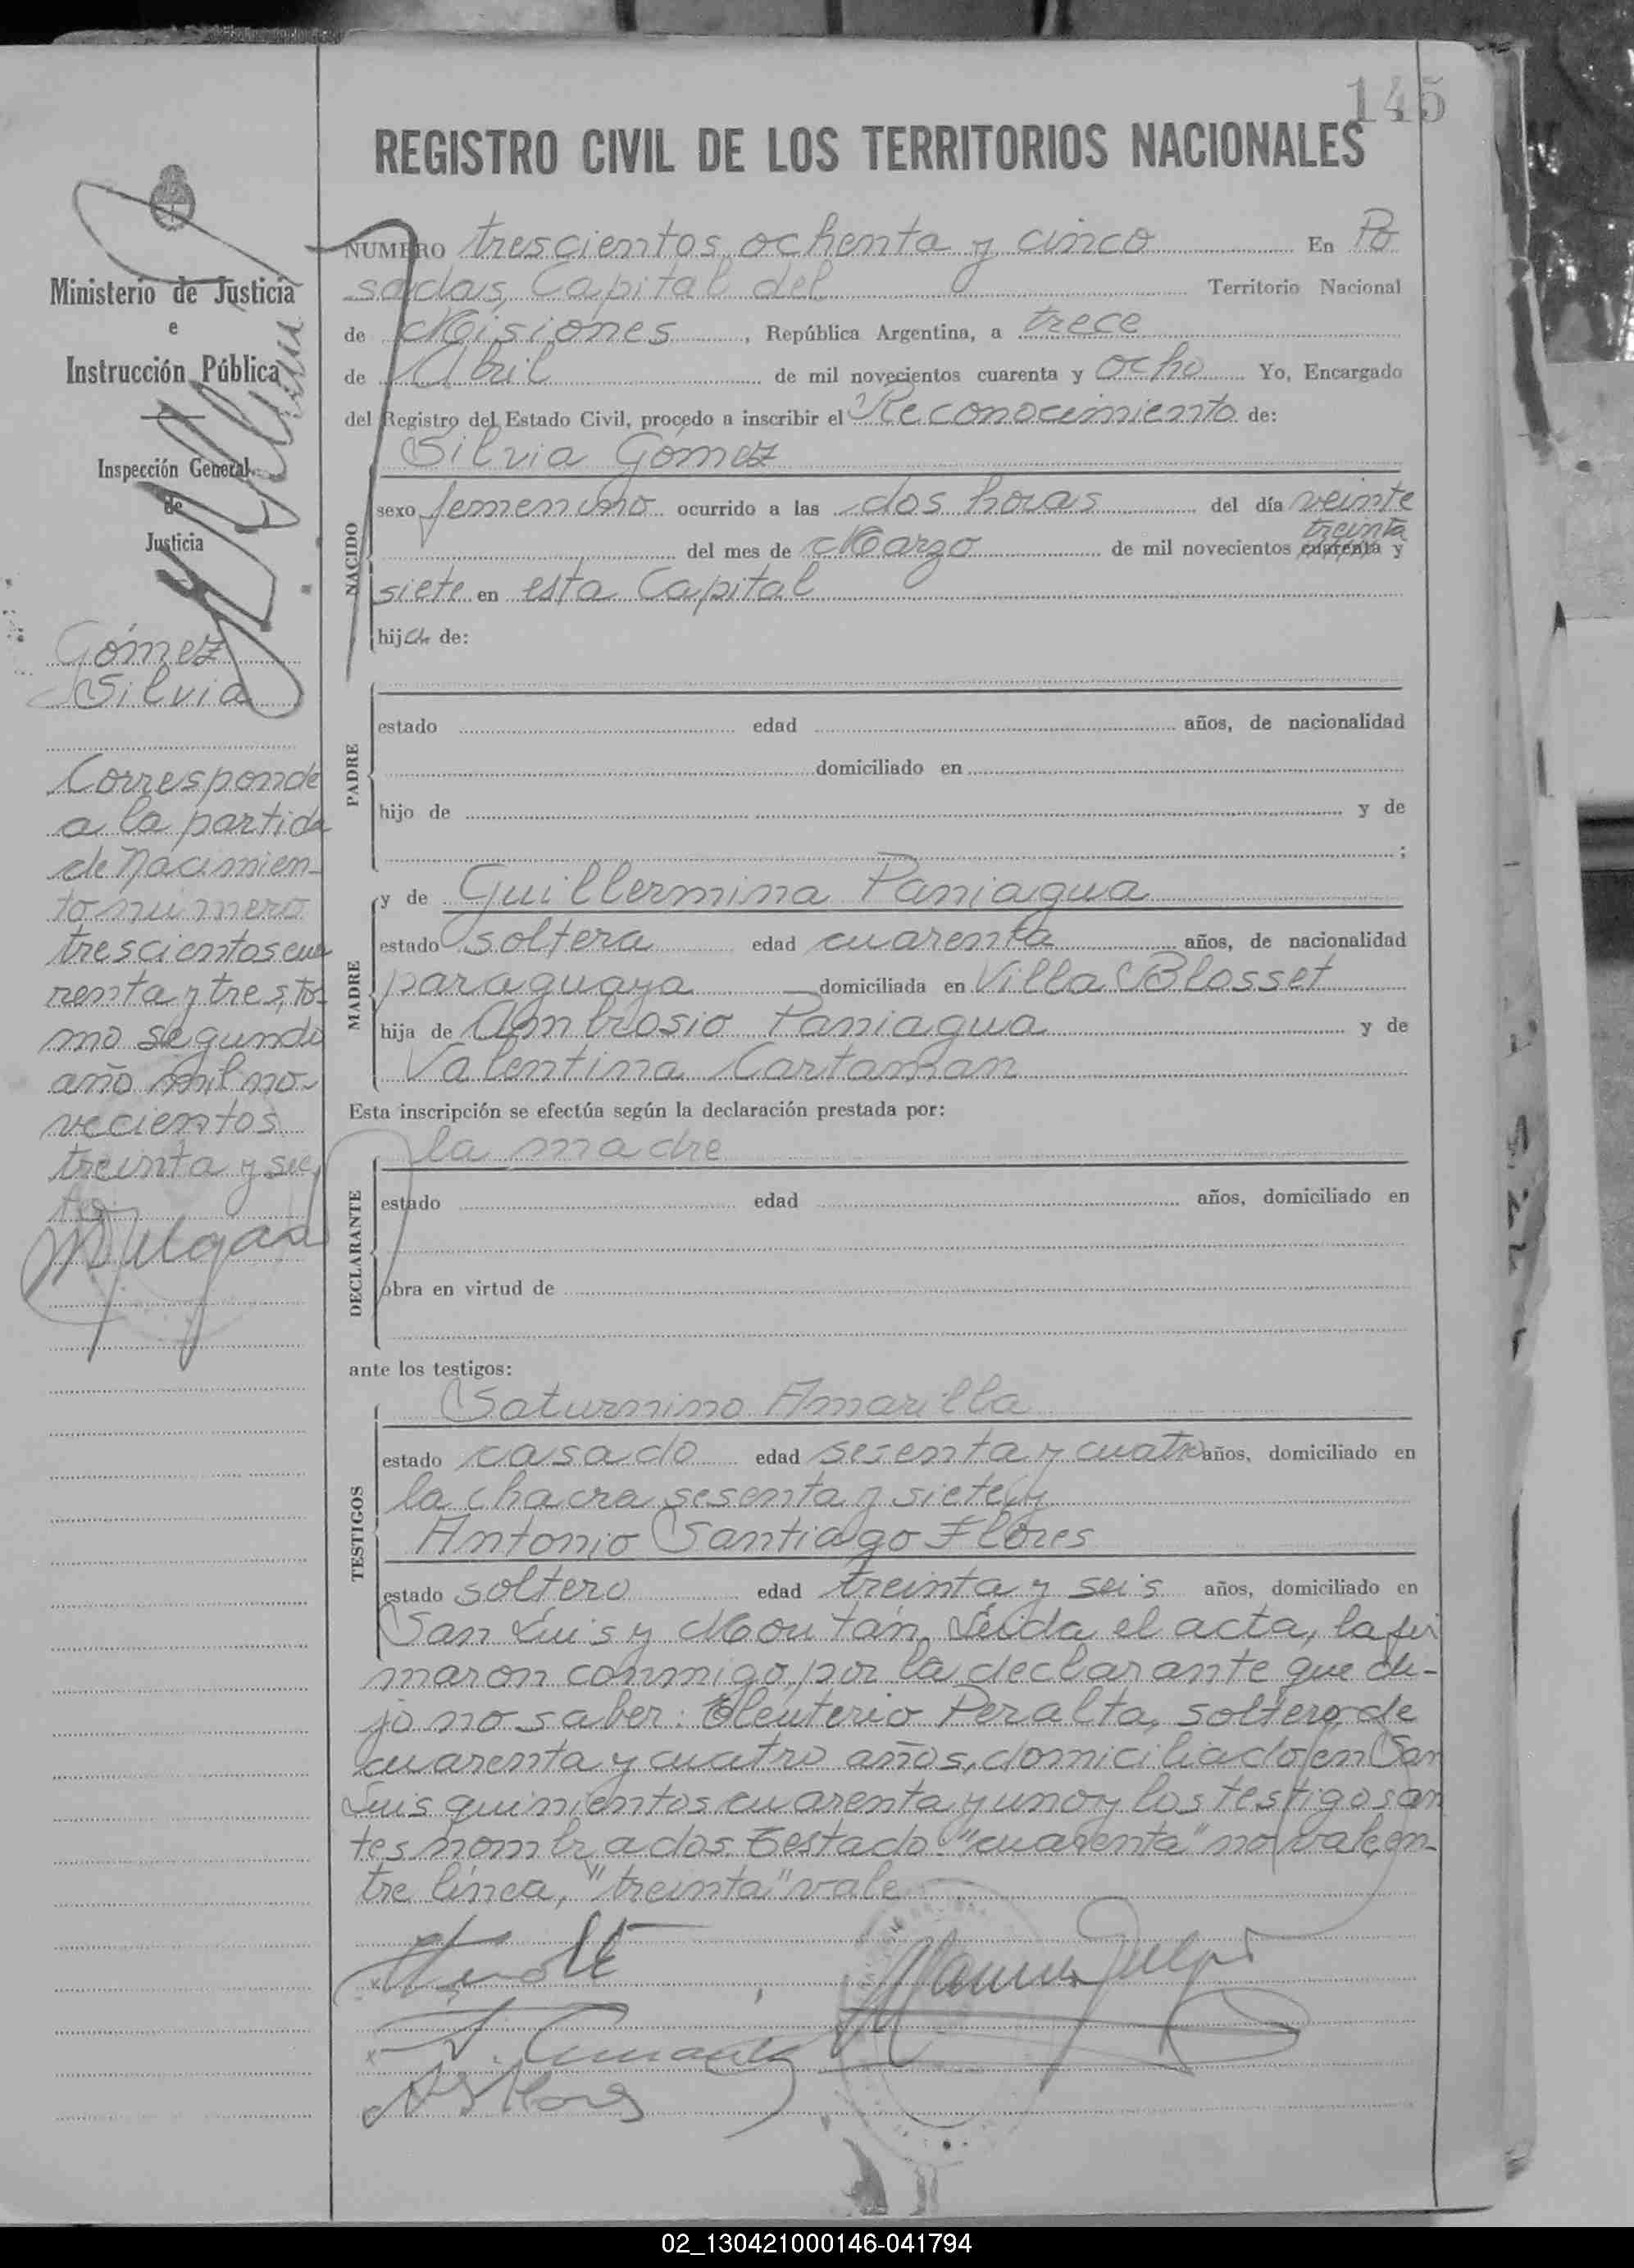 145
REGISTRO CIVIL DE LOS TERRITORIOS NACIONALES
Ministerio de Justicia
e
Instrucción Pública
Inspección General
de
Justicia
Gómez
Silvia
Corresponde
a la partida
de Nacimien-
to número
trescientos cua
renta y tres, to-
mo segundo
año mil no-
vecientos
treinta y sie
te
NUMERO trescientos ochenta y cinco En Po
sadas, Capital del Territorio Nacional
de Misiones, República Argentina, a trece
de Abril de mil novecientos cuarenta y ocho Yo, Encargado
del Registro del Estado Civil, procedo a inscribir el Reconocimiento de:
Silvia Gómez
NACIDO
sexo femenino ocurrido a las dos horas del día veinte
treinta
del mes de Marzo de mil novecientos cuarenta y
siete en esta Capital
hija de:
PADRE
estado edad años, de nacionalidad
domiciliado en
hijo de y de
;
MADRE
y de Guillermina Paniagua
estado soltera edad cuarenta años, de nacionalidad
paraguaya domiciliada en Villa Blosset
hija de Ambrosio Paniagua y de
Valentina
Esta inscripción se efectúa según la declaración prestada por:
la madre
DECLARANTE
estado edad años, domiciliado en
obra en virtud de
ante los testigos:
TESTIGOS
Saturnino Amarilla
estado casado edad sesenta y cuatro años, domiciliado en
la chacra sesenta y siete y
Antonio Santiago Flores
estado soltero edad treinta y seis años, domiciliado en
San Luis y Moután. Leída el acta, la fir
maron conmigo, por la declarante que di-
jo no saber: Eleuterio Peralta, soltero, de
cuarenta y cuatro años, domiciliado en San
Luis quinientos cuarenta y uno y los testigos an
tes nombrados. Testado: "cuarenta" no vale, en-
tre línea, "treinta" vale
02_130421000146-041794